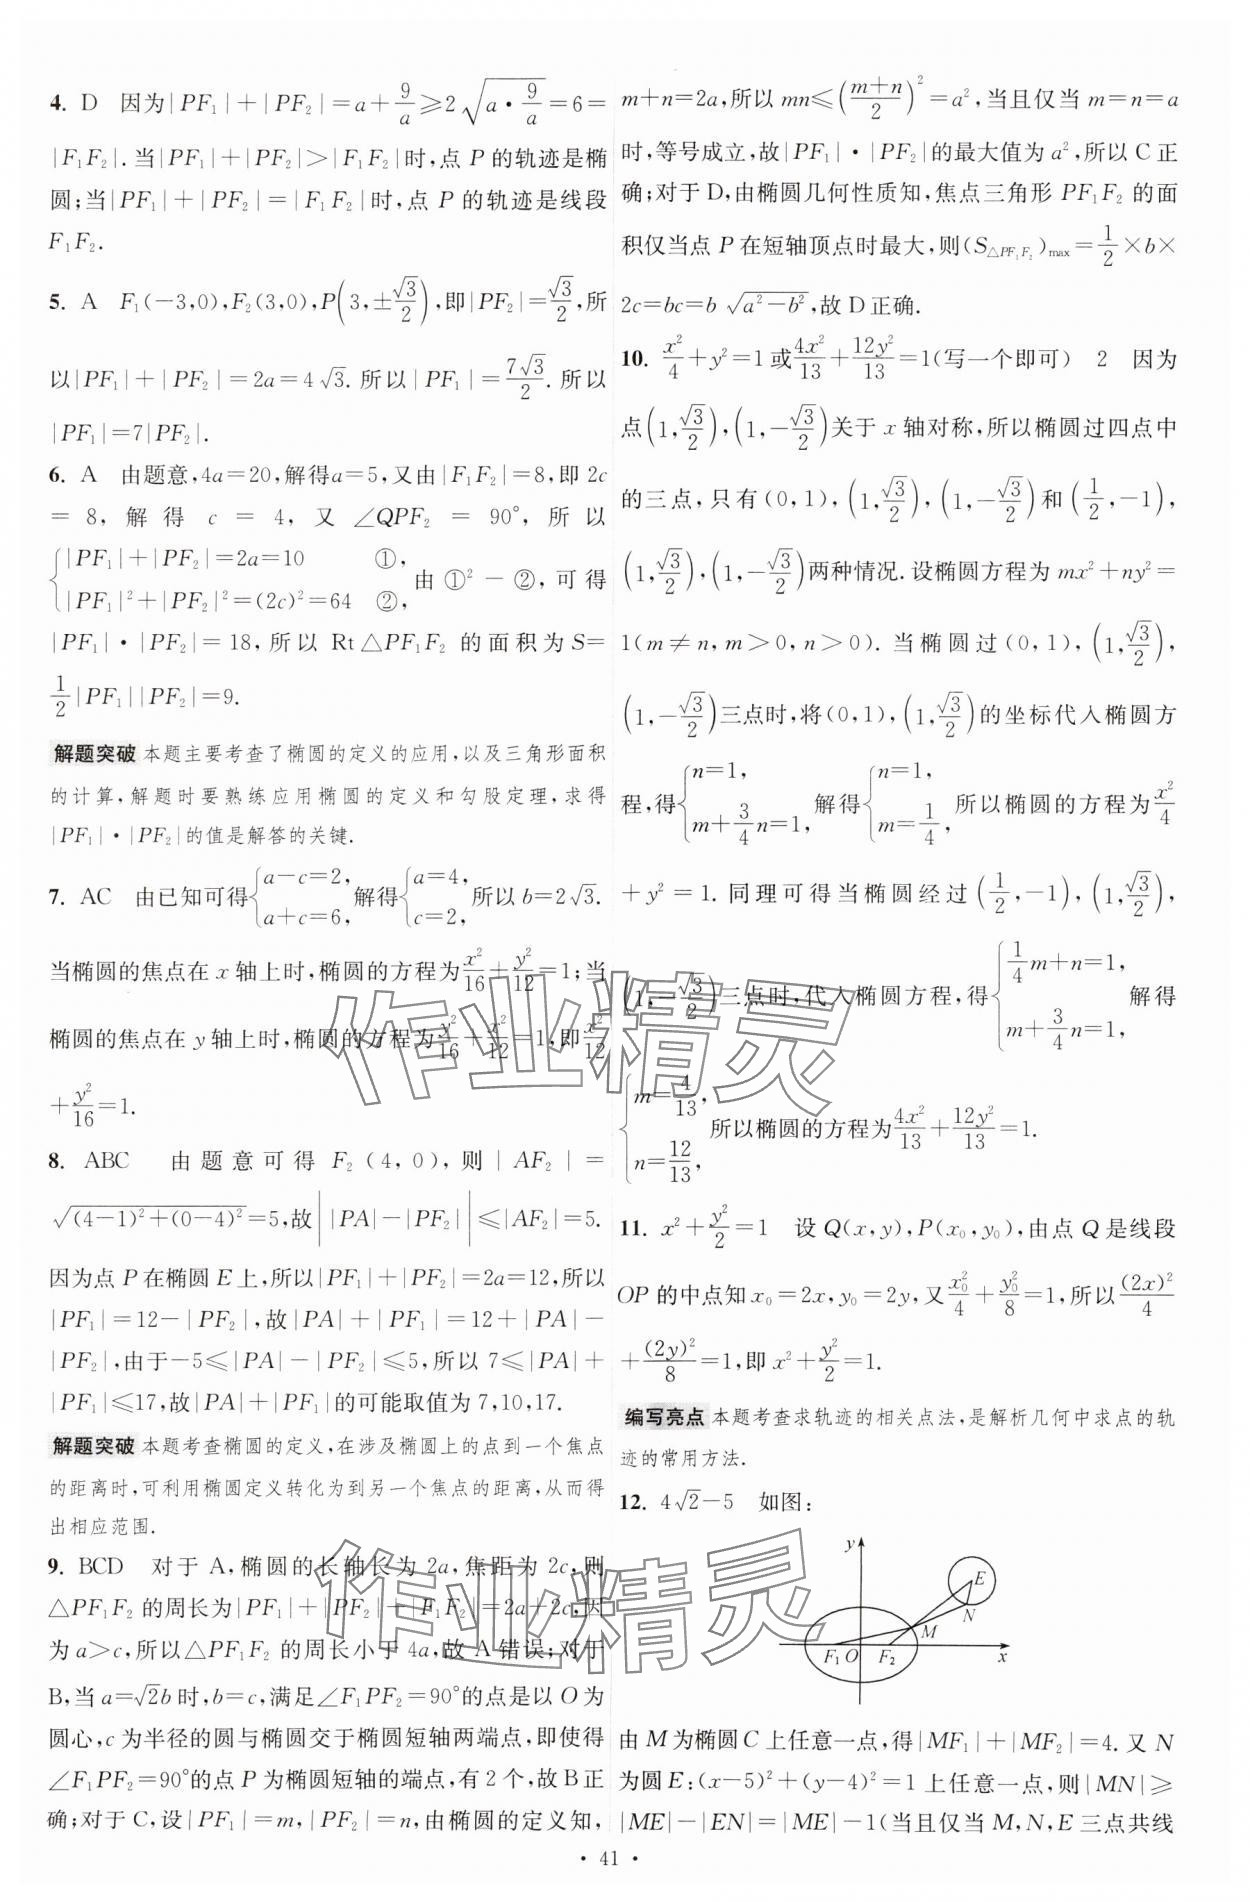 4. D 因为|PF₁|+|PF₂|=a+9/a≥2√(a·9/a)=6=
|F₁F₂|.当|PF₁|+|PF₂|>|F₁F₂|时,点 P 的轨迹是椭
圆;当|PF₁|+|PF₂|=|F₁F₂|时,点 P 的轨迹是线段
F₁F₂.
5. A F₁(-3,0),F₂(3,0),P(3,±√3/2),即|PF₂|=√3/2,所
以|PF₁|+|PF₂|=2a=4√3.所以|PF₁|=7√3/2.所以
|PF₁|=7|PF₂|.
6. A 由题意,4a=20,解得a=5,又由|F₁F₂|=8,即 2c
=8,解得 c=4,又∠QPF₂=90°,所以
{|PF₁|+|PF₂|=2a=10 ①,
|PF₁|²+|PF₂|²=(2c)²=64 ②, 由①²-②,可得
|PF₁|·|PF₂|=18,所以 Rt△PF₁F₂ 的面积为 S=
1/2|PF₁||PF₂|=9.
解题突破 本题主要考查了椭圆的定义的应用,以及三角形面积
的计算,解题时要熟练应用椭圆的定义和勾股定理,求得
|PF₁|·|PF₂|的值是解答的关键.
7. AC 由已知可得{a-c=2, a+c=6, 解得{a=4, c=2, 所以 b=2√3.
当椭圆的焦点在 x 轴上时,椭圆的方程为x²/16+y²/12=1;当
椭圆的焦点在 y 轴上时,椭圆的方程为y²/16+x²/12=1,即x²/12
+y²/16=1.
8. ABC 由题意可得 F₂(4,0),则|AF₂|=
√((4-1)²+(0-4)²)=5,故||PA|-|PF₂||≤|AF₂|=5.
因为点 P 在椭圆 E 上,所以|PF₁|+|PF₂|=2a=12,所以
|PF₁|=12-|PF₂|,故|PA|+|PF₁|=12+|PA|-
|PF₂|,由于-5≤|PA|-|PF₂|≤5,所以 7≤|PA|+
|PF₁|≤17,故|PA|+|PF₁|的可能取值为 7,10,17.
解题突破 本题考查椭圆的定义,在涉及椭圆上的点到一个焦点
的距离时,可利用椭圆定义转化为到另一个焦点的距离,从而得
出相应范围.
9. BCD 对于 A,椭圆的长轴长为 2a,焦距为 2c,则
△PF₁F₂ 的周长为|PF₁|+|PF₂|+|F₁F₂|=2a+2c,因
为 a>c,所以△PF₁F₂ 的周长小于 4a,故 A 错误;对于
B,当 a=√2b 时,b=c,满足∠F₁PF₂=90°的点是以 O 为
圆心,c 为半径的圆与椭圆交于椭圆短轴两端点,即使得
∠F₁PF₂=90°的点 P 为椭圆短轴的端点,有 2 个,故 B 正
确;对于 C,设|PF₁|=m,|PF₂|=n,由椭圆的定义知,
m+n=2a,所以 mn≤((m+n)/2)²=a²,当且仅当 m=n=a
时,等号成立,故|PF₁|·|PF₂|的最大值为 a²,所以 C 正
确;对于 D,由椭圆几何性质知,焦点三角形 PF₁F₂ 的面
积仅当点 P 在短轴顶点时最大,则(S△PF₁F₂)max=1/2×b×
2c=bc=b√(a²-b²),故 D 正确.
10. x²/4+y²=1 或4x²/13+12y²/13=1(写一个即可) 2 因为
点(1,√3/2),(1,-√3/2)关于 x 轴对称,所以椭圆过四点中
的三点,只有(0,1),(1,√3/2),(1,-√3/2)和(1/2,-1),
(1,√3/2),(1,-√3/2)两种情况.设椭圆方程为 mx²+ny²=
1(m≠n,m>0,n>0).当椭圆过(0,1),(1,√3/2),
(1,-√3/2)三点时,将(0,1),(1,√3/2)的坐标代入椭圆方
程,得{n=1, m+3/4n=1, 解得{n=1, m=1/4, 所以椭圆的方程为x²/4
+y²=1.同理可得当椭圆经过(1/2,-1),(1,√3/2),
(1,-√3/2)三点时,代入椭圆方程,得{1/4m+n=1, m+3/4n=1, 解得
{m=4/13, n=12/13, 所以椭圆的方程为4x²/13+12y²/13=1.
11. x²+y²/2=1 设 Q(x,y),P(x₀,y₀),由点 Q 是线段
OP 的中点知 x₀=2x,y₀=2y,又x₀²/4+y₀²/8=1,所以(2x)²/4
+(2y)²/8=1,即 x²+y²/2=1.
编写亮点 本题考查求轨迹的相关点法,是解析几何中求点的轨
迹的常用方法.
12. 4√2-5 如图:
y
E
N
M
F₁ O F₂ x
由 M 为椭圆 C 上任意一点,得|MF₁|+|MF₂|=4.又 N
为圆 E:(x-5)²+(y-4)²=1 上任意一点,则|MN|≥
|ME|-|EN|=|ME|-1(当且仅当 M,N,E 三点共线
· 41 ·
作业精灵
作业精灵